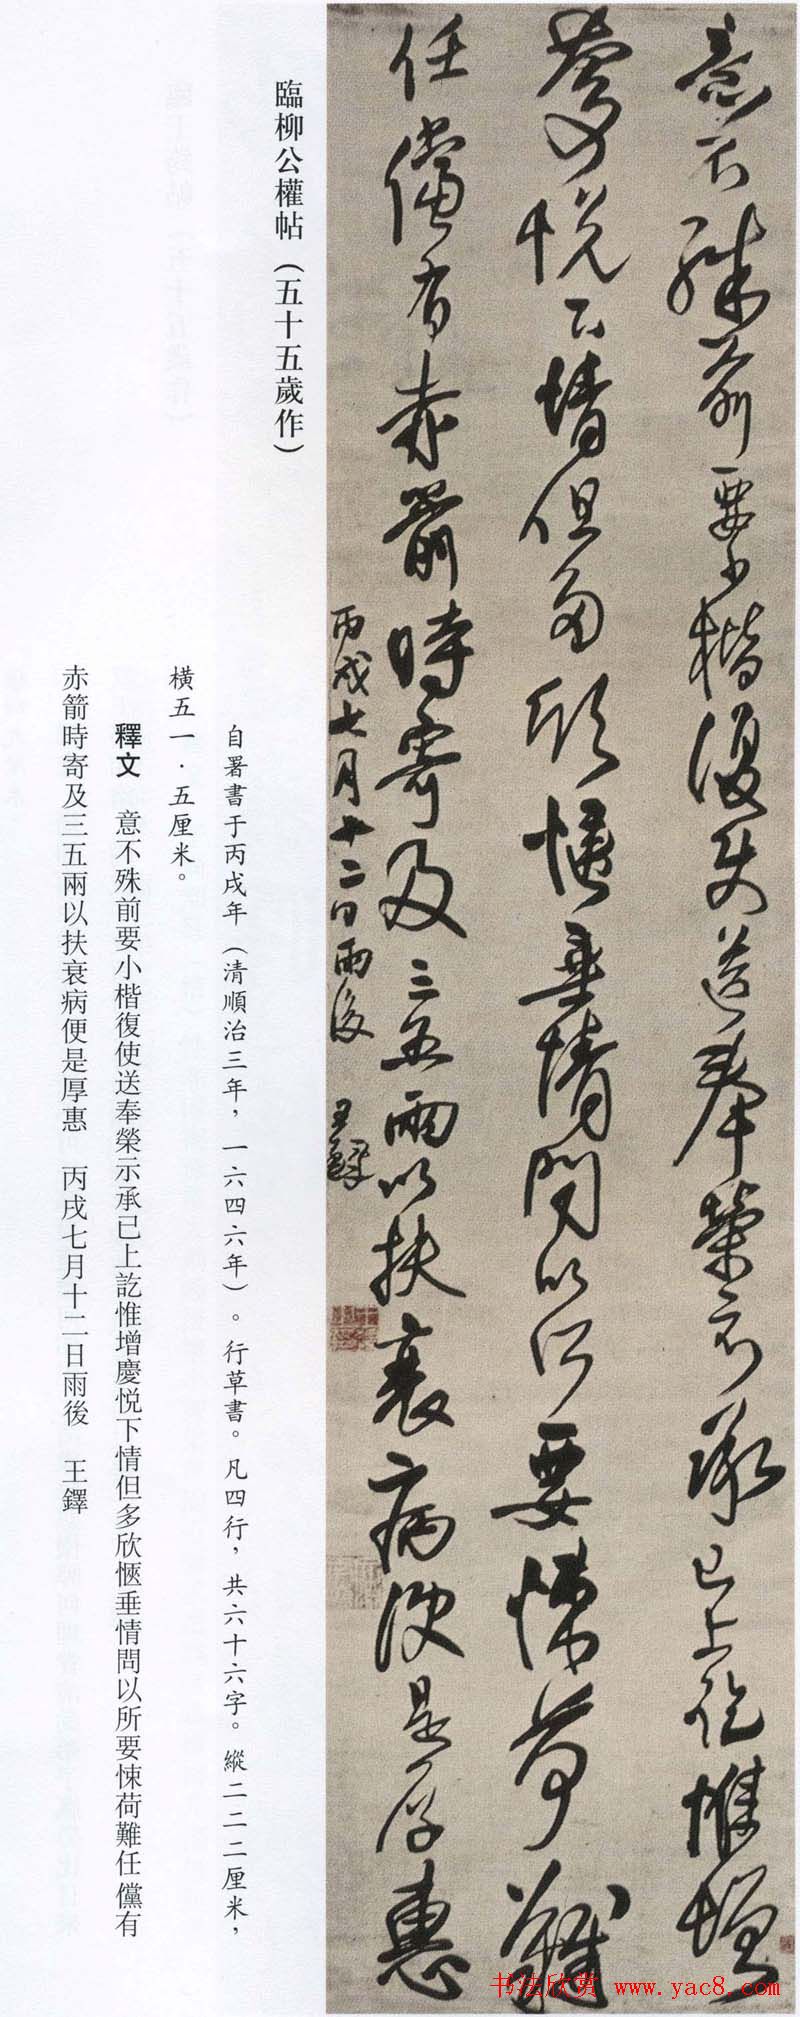 意不殊前要小楷復使送奉榮示承已上訖惟增
慶悅下情但多欣愜垂情問以所要悚荷難
任儻有赤箭時寄及三五兩以扶衰病便是厚惠
丙戌七月十二日雨後 王鐸
臨柳公權帖（五十五歲作）
自署書于丙戌年（清順治三年，一六四六年）。行草書。凡四行，共六十六字。縱二二二厘米，
橫五一·五厘米。
釋文 意不殊前要小楷復使送奉榮示承已上訖惟增慶悅下情但多欣愜垂情問以所要悚荷難任儻有
赤箭時寄及三五兩以扶衰病便是厚惠 丙戌七月十二日雨後 王鐸
书法欣赏 www.yac8.com